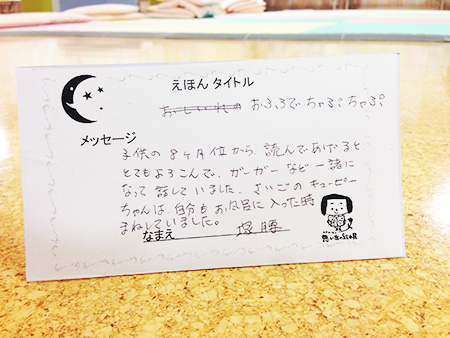 えほん タイトル
おふろで ちゃぷ ちゃぷ
メッセージ
子供の 8ヶ月位から、読んであげると
とてもよろこんで、ガーガー など 一緒に
なって 話していました。さいごのキューピー
ちゃんは、自分も お風呂に入った時
まねしていました。
なまえ